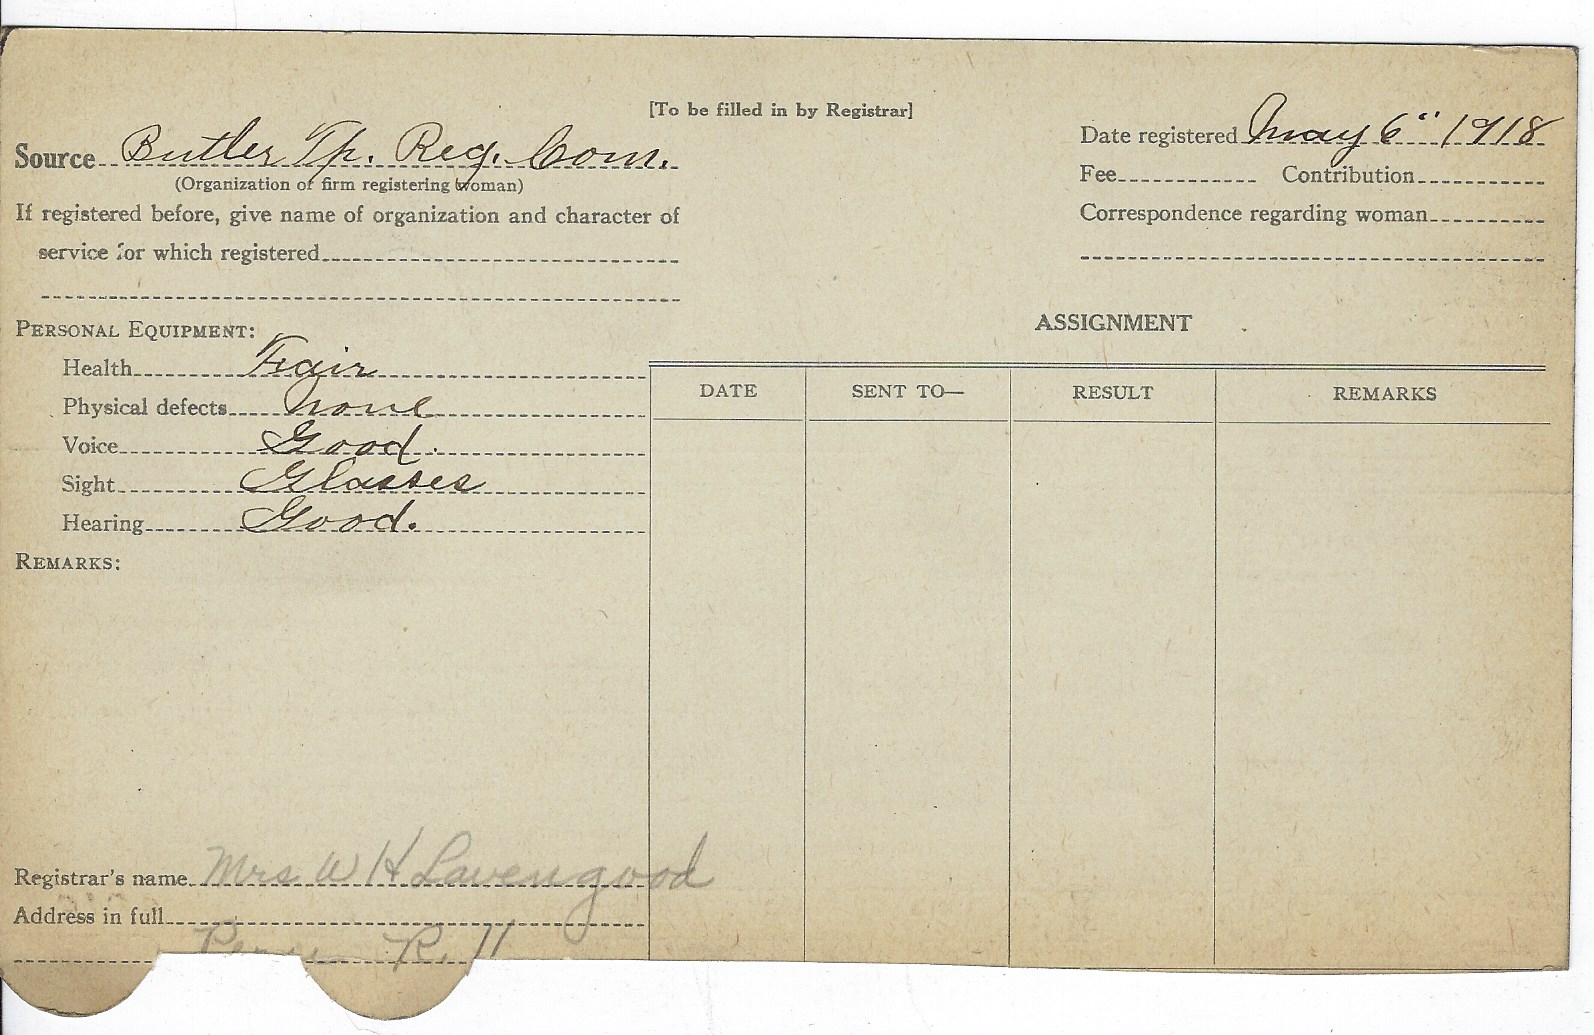 [To be filled in by Registrar]
Source Butler Tp. Reg. Com.
(Organization or firm registering woman)
If registered before, give name of organization and character of
service for which registered
Date registered May 6" 1918
Fee Contribution
Correspondence regarding woman
PERSONAL EQUIPMENT:
Health Fair
Physical defects none
Voice Good.
Sight Glasses
Hearing Good.
REMARKS:
ASSIGNMENT
DATE SENT TO— RESULT REMARKS
Registrar's name Mrs W H Lavengood
Address in full
R. 11